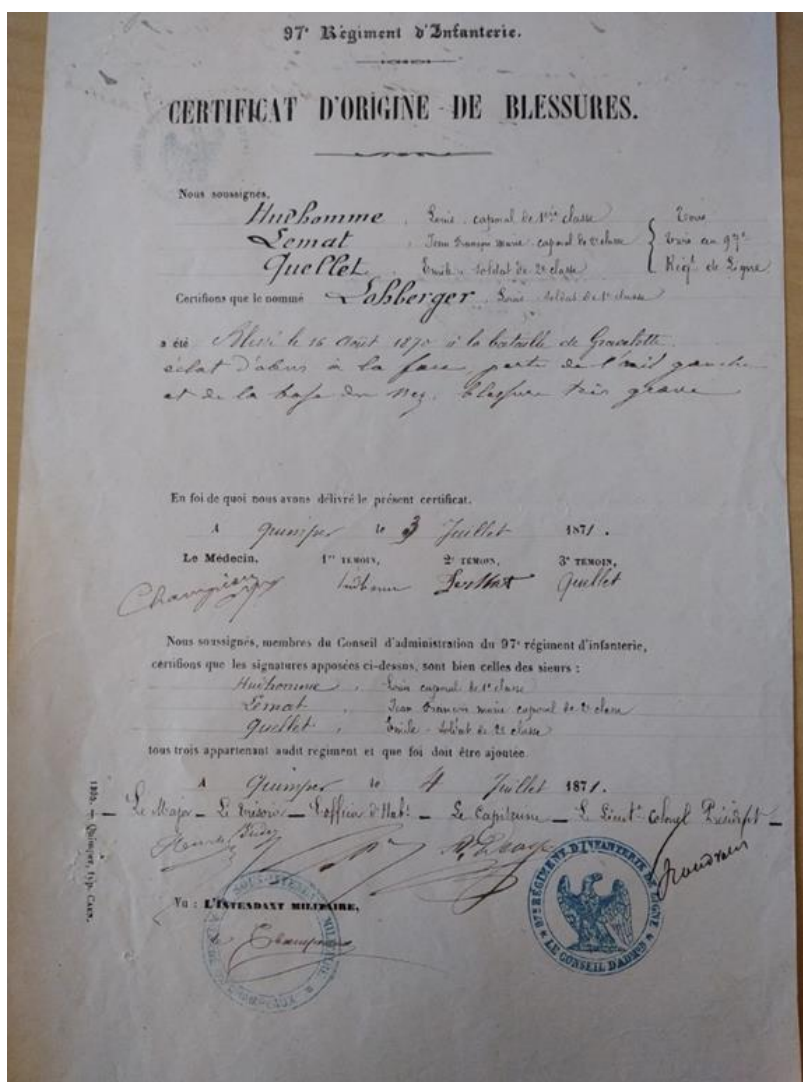 97e Régiment d'Infanterie.
CERTIFICAT D'ORIGINE DE BLESSURES.
Nous soussignés,
Hudhomme, Louis caporal de 1ère classe
Lemat, Jean François marie caporal de 2e classe
Quellet, Emile soldat de 2e classe
Tous
trois au 97e
Régt de Ligne
Certifions que le nommé Lohberger, Louis soldat de 1e classe
a été blessé le 16 août 1870 à la bataille de Gravelotte.
éclat d'obus à la face, perte de l'œil gauche
et de la base du nez, blessure très grave
En foi de quoi nous avons délivré le présent certificat.
A Quimper le 3 Juillet 1871.
Le Médecin, 1er TÉMOIN, 2e TÉMOIN, 3e TÉMOIN,
Quellet
Nous soussignés, membres du Conseil d'administration du 97e régiment d'infanterie,
certifions que les signatures apposées ci-dessus, sont bien celles des sieurs :
Hudhomme, Louis caporal de 1e classe
Lemat, Jean François marie caporal de 2e classe
Quellet, Emile soldat de 2e classe
tous trois appartenant audit régiment et que foi doit être ajoutée.
A Quimper le 4 Juillet 1871.
Le Major _ Le Trésorier _ L'officier d'Habt _ Le Capitaine _ Le Lieutt Colonel Président _
Vu : L'INTENDANT MILITAIRE,
SOUS-INTENDANT MILITAIRE
97e RÉGIMENT D'INFANTERIE DE LIGNE
LE CONSEIL D'ADMON
Quimper, typ. CAEN.